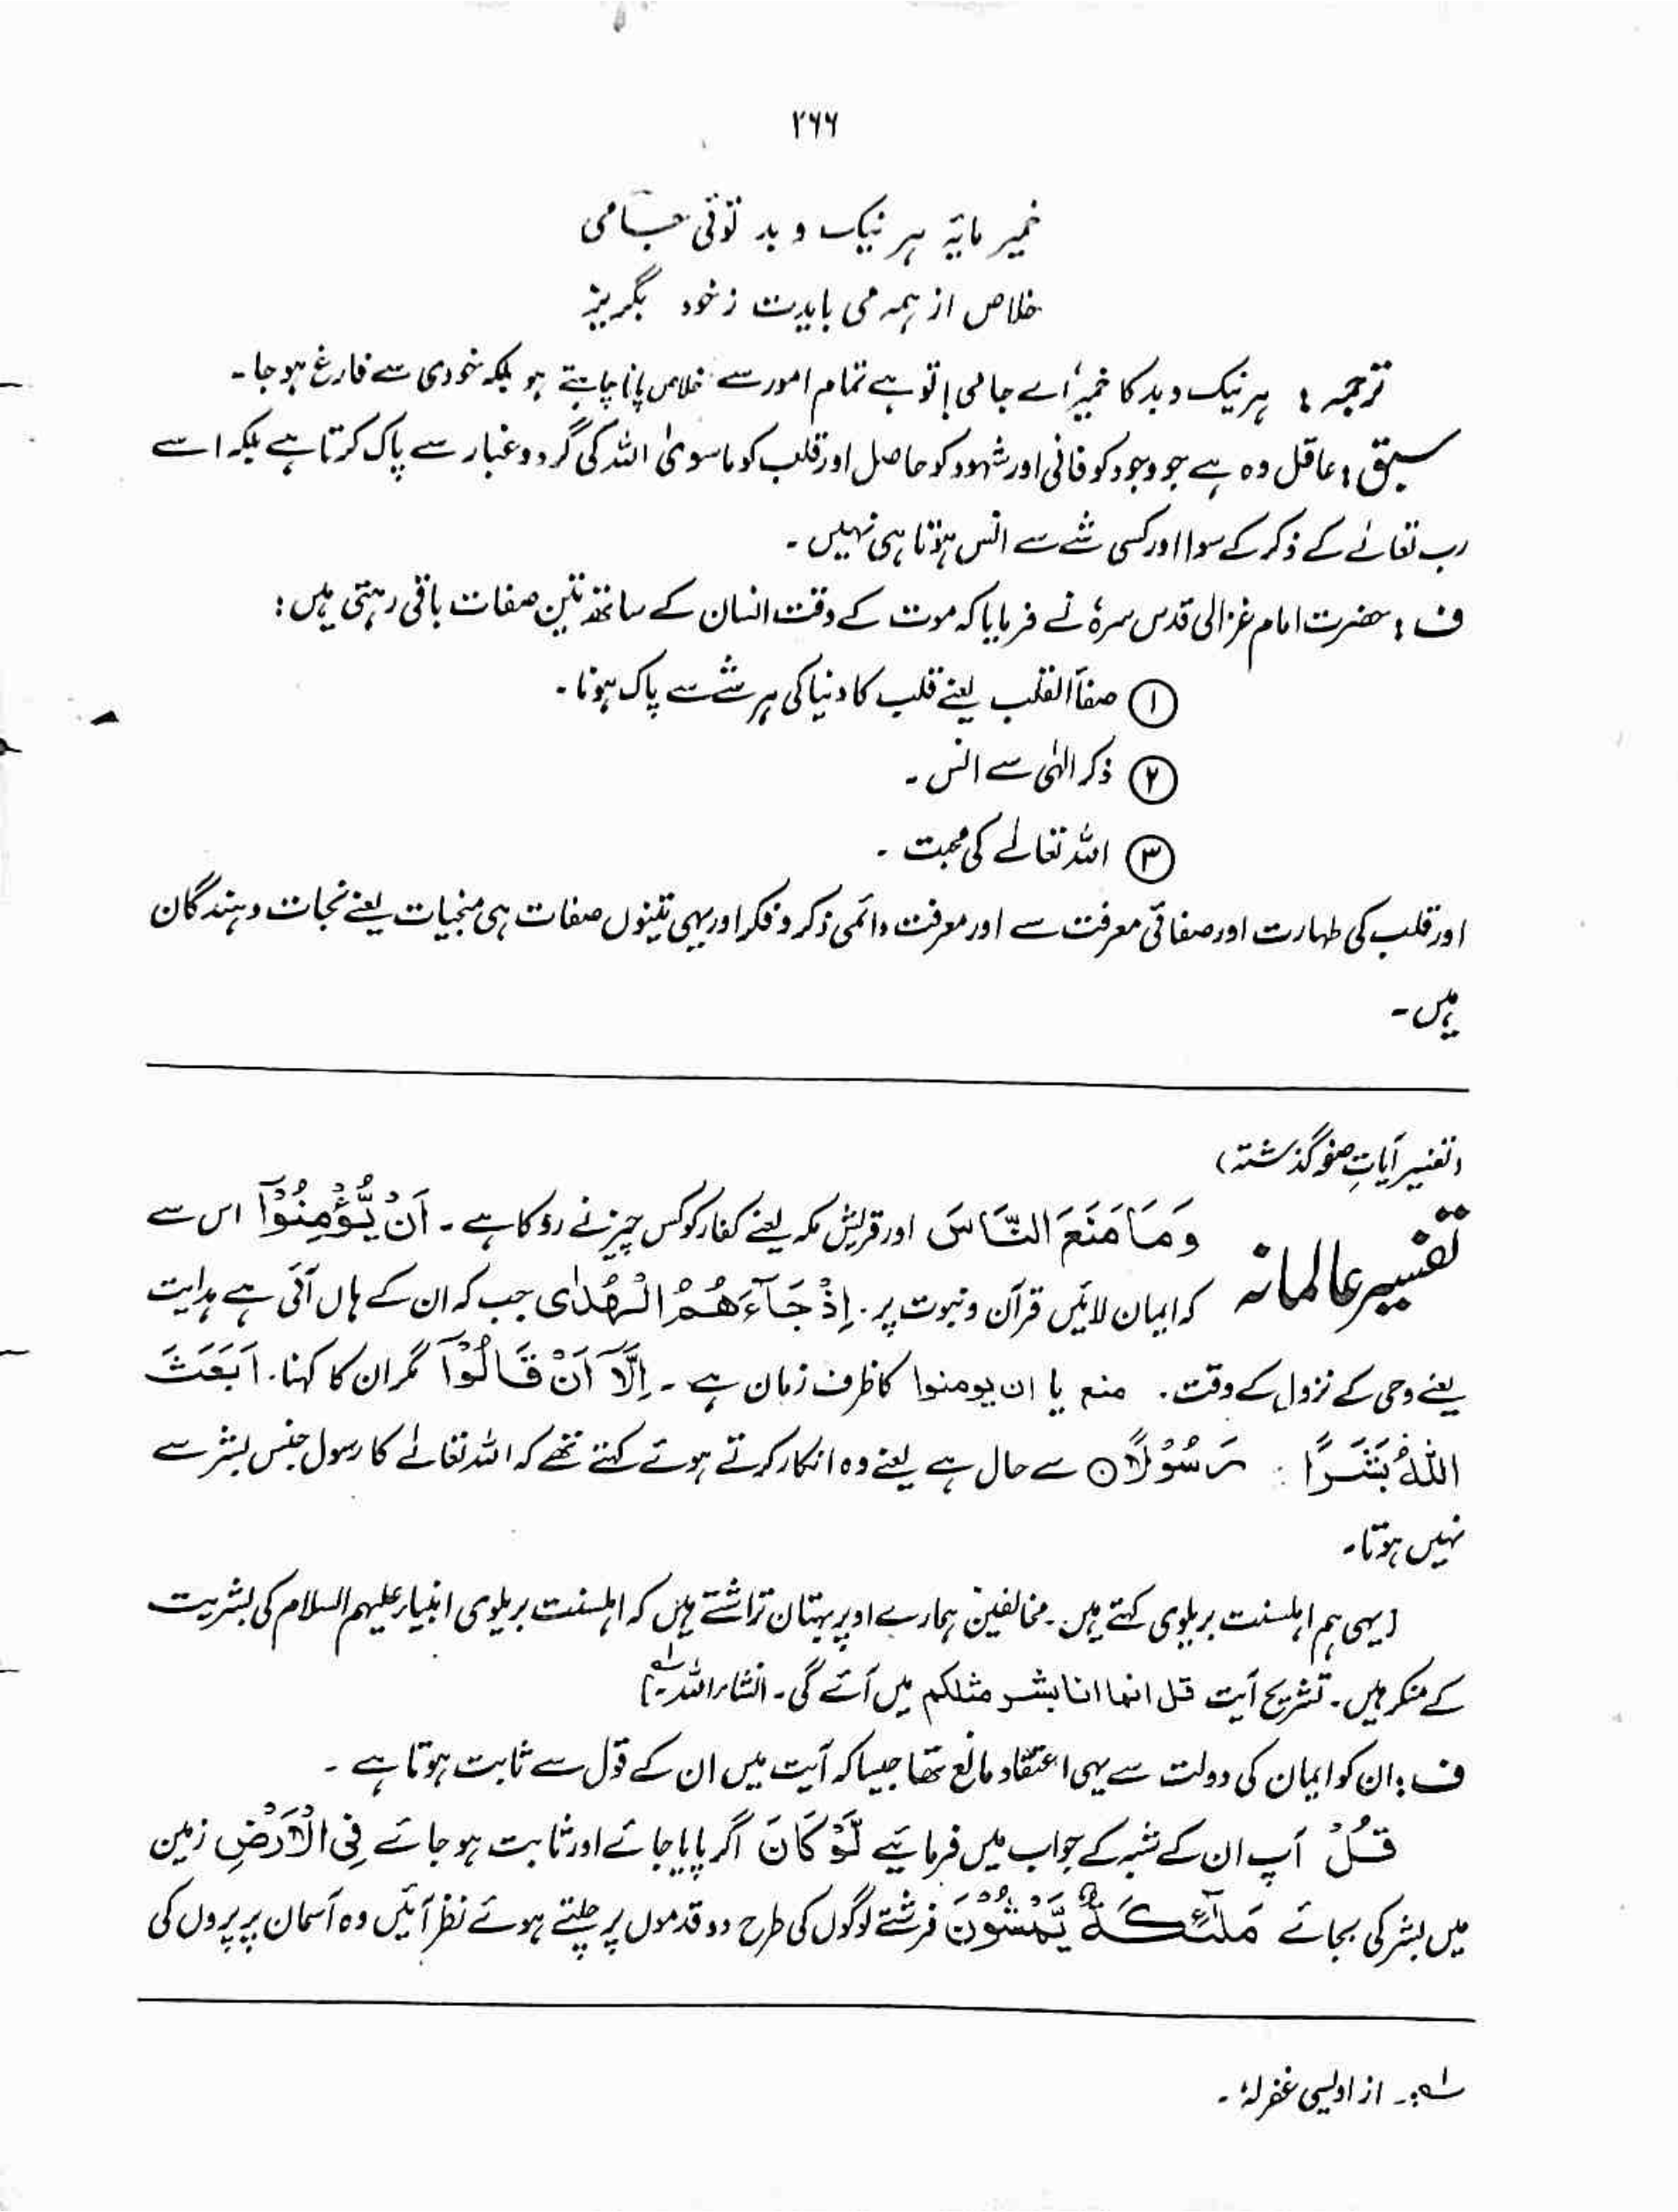 ۲۶۶
خمیر مایۂ ہر نیک و بد توئی جامی
خلاص از ہمہ می بایدت زخود بگریز
ترجمہ : ہر نیک و بد کا خمیر اے جامی ! تو ہے تمام امور سے خلاص پانا چاہتے ہو بلکہ خودی سے فارغ ہو جا۔
سبق : عاقل وہ ہے جو وجود کو فانی اور شہود کو حاصل اور قلب کو ماسویٰ اللہ کی گرد و غبار سے پاک کرتا ہے بلکہ اسے
رب تعالےٰ کے ذکر کے سوا اور کسی شے سے انس ہوتا ہی نہیں ۔
ف : حضرت امام غزالی قدس سرہٗ نے فرمایا کہ موت کے وقت انسان کے ساتھ تین صفات باقی رہتی ہیں :
① صفآ القلب یعنے قلب کا دنیا کی ہر شے سے پاک ہونا ۔
② ذکر الٰہی سے انس ۔
③ اللہ تعالےٰ کی محبت ۔
اور قلب کی طہارت اور صفائی معرفت سے اور معرفت دائمی ذکر و فکر اور یہی تینوں صفات ہی منجیات یعنے نجات دہندگان
ہیں ۔
(تفسیر آیاتِ صفحہ گذشتہ)
تفسیر عالمانہ وَمَا مَنَعَ النَّاسَ اور قریش مکہ یعنے کفار کو کس چیز نے روکا ہے ۔ اَنْ یُّؤْمِنُوْآ اس سے
کہ ایمان لائیں قرآن و نبوت پر ۔ اِذْ جَآءَھُمُ الْھُدٰی جب کہ ان کے ہاں آئی ہے ہدایت
یعنے وحی کے نزول کے وقت ۔ منع یا ان یومنوا کا ظرف زمان ہے ۔ اِلَّآ اَنْ قَالُوْآ مگر ان کا کہنا ۔ اَبَعَثَ
اللّٰہُ بَشَرًا رَّسُوْلًا ○ سے حال ہے یعنے وہ انکار کرتے ہوئے کہتے تھے کہ اللہ تعالےٰ کا رسول جنس بشر سے
نہیں ہوتا ۔
[یہی ہم اہلسنت بریلوی کہتے ہیں ۔ مخالفین ہمارے اوپر بہتان تراشتے ہیں کہ اہلسنت بریلوی انبیاء علیہم السلام کی بشریت
کے منکر ہیں ۔ تشریح آیت قل انما انا بشر مثلکم میں آئے گی ۔ انشاء اللہ ۔] لہ
ف : ان کو ایمان کی دولت سے یہی اعتقاد مانع تھا جیسا کہ آیت میں ان کے قول سے ثابت ہوتا ہے ۔
قُلْ آپ ان کے شبہ کے جواب میں فرمائیے لَّوْ کَانَ اگر پایا جائے اور ثابت ہو جائے فِی الْاَرْضِ زمین
میں بشر کی بجائے مَلٰٓئِکَۃٌ یَّمْشُوْنَ فرشتے لوگوں کی طرح دو قدموں پر چلتے ہوئے نظر آئیں وہ آسمان پر پروں کی
لہ :۔ از اویسی غفرلہٗ ۔